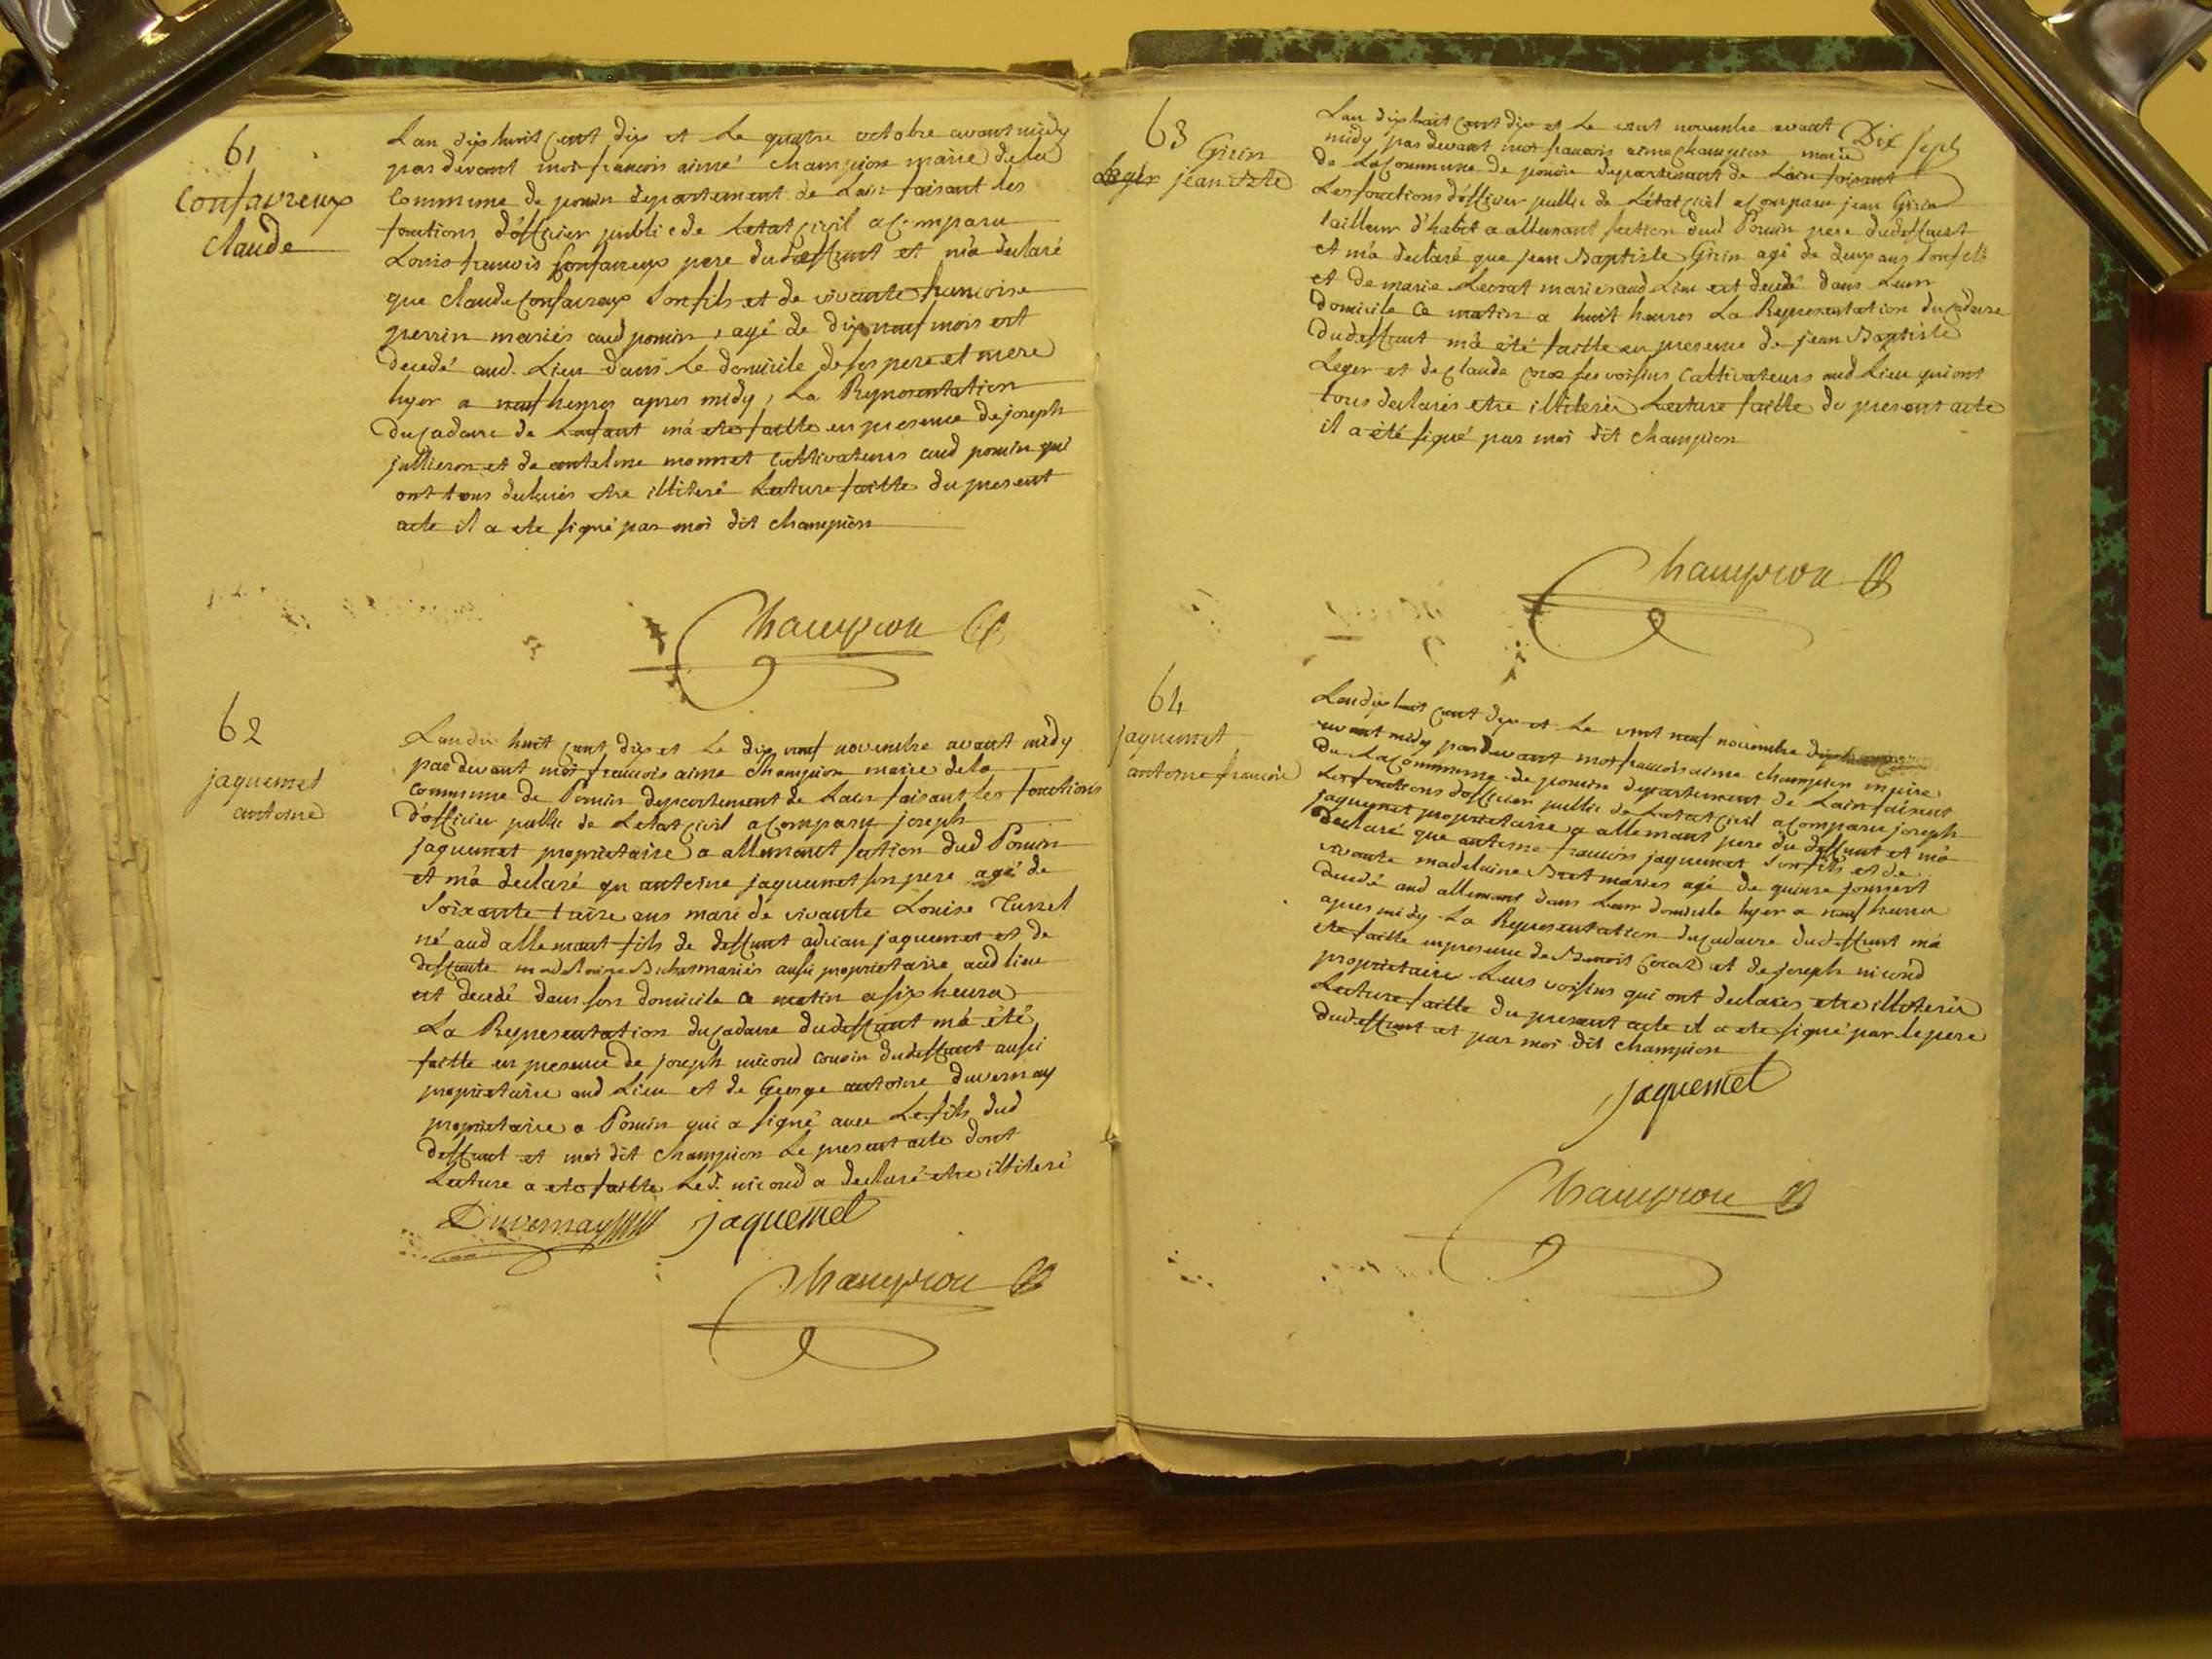 61
Confavreux
Claude
Lan dix huit cent dix et le quatre octobre avant midy
pas devant moi francois aimé champion maire de la
Commune de poncin departement de Lain faisant les
fonctions dófficier public de Letat civil a Comparu
Louis francois Confavreux pere du deffunt et má declaré
que claude Confavreux son fils et de vivante francoise
perrin mariés aud poncin, agé de dix neuf mois est
decedé aud. Lieu dans le domicile de ses pere et mere
hyer a neuf heures apres midy, La Representation
du cadavre de Lenfant má ete faitte en presence de joseph
jullieron et de antelme monnet cultivateurs aud poncin qui
ont tous declarés etre illiteré Lecture faitte du present
acte il a ete signé par moi dit champion
Champion
62
jaquemet
antoine
Lan dix huit cent dix et le dix neuf novembre avant midy
pas devant moi francois aime champion maire de la
Commune de Poncin departement de Lain faisant les fonctions
dófficier public de Letat civil a Comparu joseph
jaquemet proprietaire a allemant section dud Poncin
et má declaré qu antoine jaquemet son pere agé de
soixante traize ans mari de vivante Louise Turrel
né aud allemant fils de deffunt adrian jaquemet et de
deffunte madelaine mariés aussi proprietaire aud lieu
est decedé dans son domicile ce matin a six heures
La Representation du cadavre du deffunt má été
faitte en presence de joseph nicond cousin du deffunt aussi
proprietaire aud Lieu et de George antoine duvernay
proprietaire a Poncin qui a signé avec Le fils dud
deffunt et moi dit champion Le present acte dont
Lecture a ete faitte Led. nicond a declaré etre illiteré
Duvernay jaquemet
Champion
63
Girin
Leger jean bte
Lan dix huit cent dix et le vint novembre avant Dix sept
midy pas devant moi francois aime champion maire
de La Commune de poncin departement de Lain faisant
Les fonctions dófficier public de Létat civil a Comparu jean Girin
tailleur d'habit a allemant section dud Poncin pere du deffunt
et má declaré que jean Baptiste Girin agé de deux ans son fils
et de marie Lecrat mariés aud Lieu est decedé dans Leur
domicile Ce matin a huit heures La Representation du cadavre
du deffunt má été faitte en presence de jean Baptiste
Leger et de claude coraz ses voisins Cultivateurs aud Lieu qui ont
tous declarés etre illiterés Lecture faitte du present acte
il a été signé par moi dit champion
Champion
64
jaquemet
antoine francois
Lan dix huit cent dix et le vint neuf novembre
avant midy pardevant moi francois aime champion maire
de La Commune de poncin departement de Lain faisant
Les fonctions dofficier public de Letat civil a Comparu joseph
jaquemet proprietaire a allemant pere du deffunt et má
declaré que antoine francois jaquemet son fils et de
vivante madelaine Bret mariés agé de quinze jours est
decedé aud allemant dans Leur domicile hyer a neuf heures
apres midy La Representation du cadavre du deffunt má
ete faitte en presence de Benoit Coraz et de joseph nicond
proprietaires Leurs voisins qui ont declarés etre illiterés
Lecture faitte du present acte il a ete signé par le pere
du deffunt et par moi dit champion
jaquemet
Champion